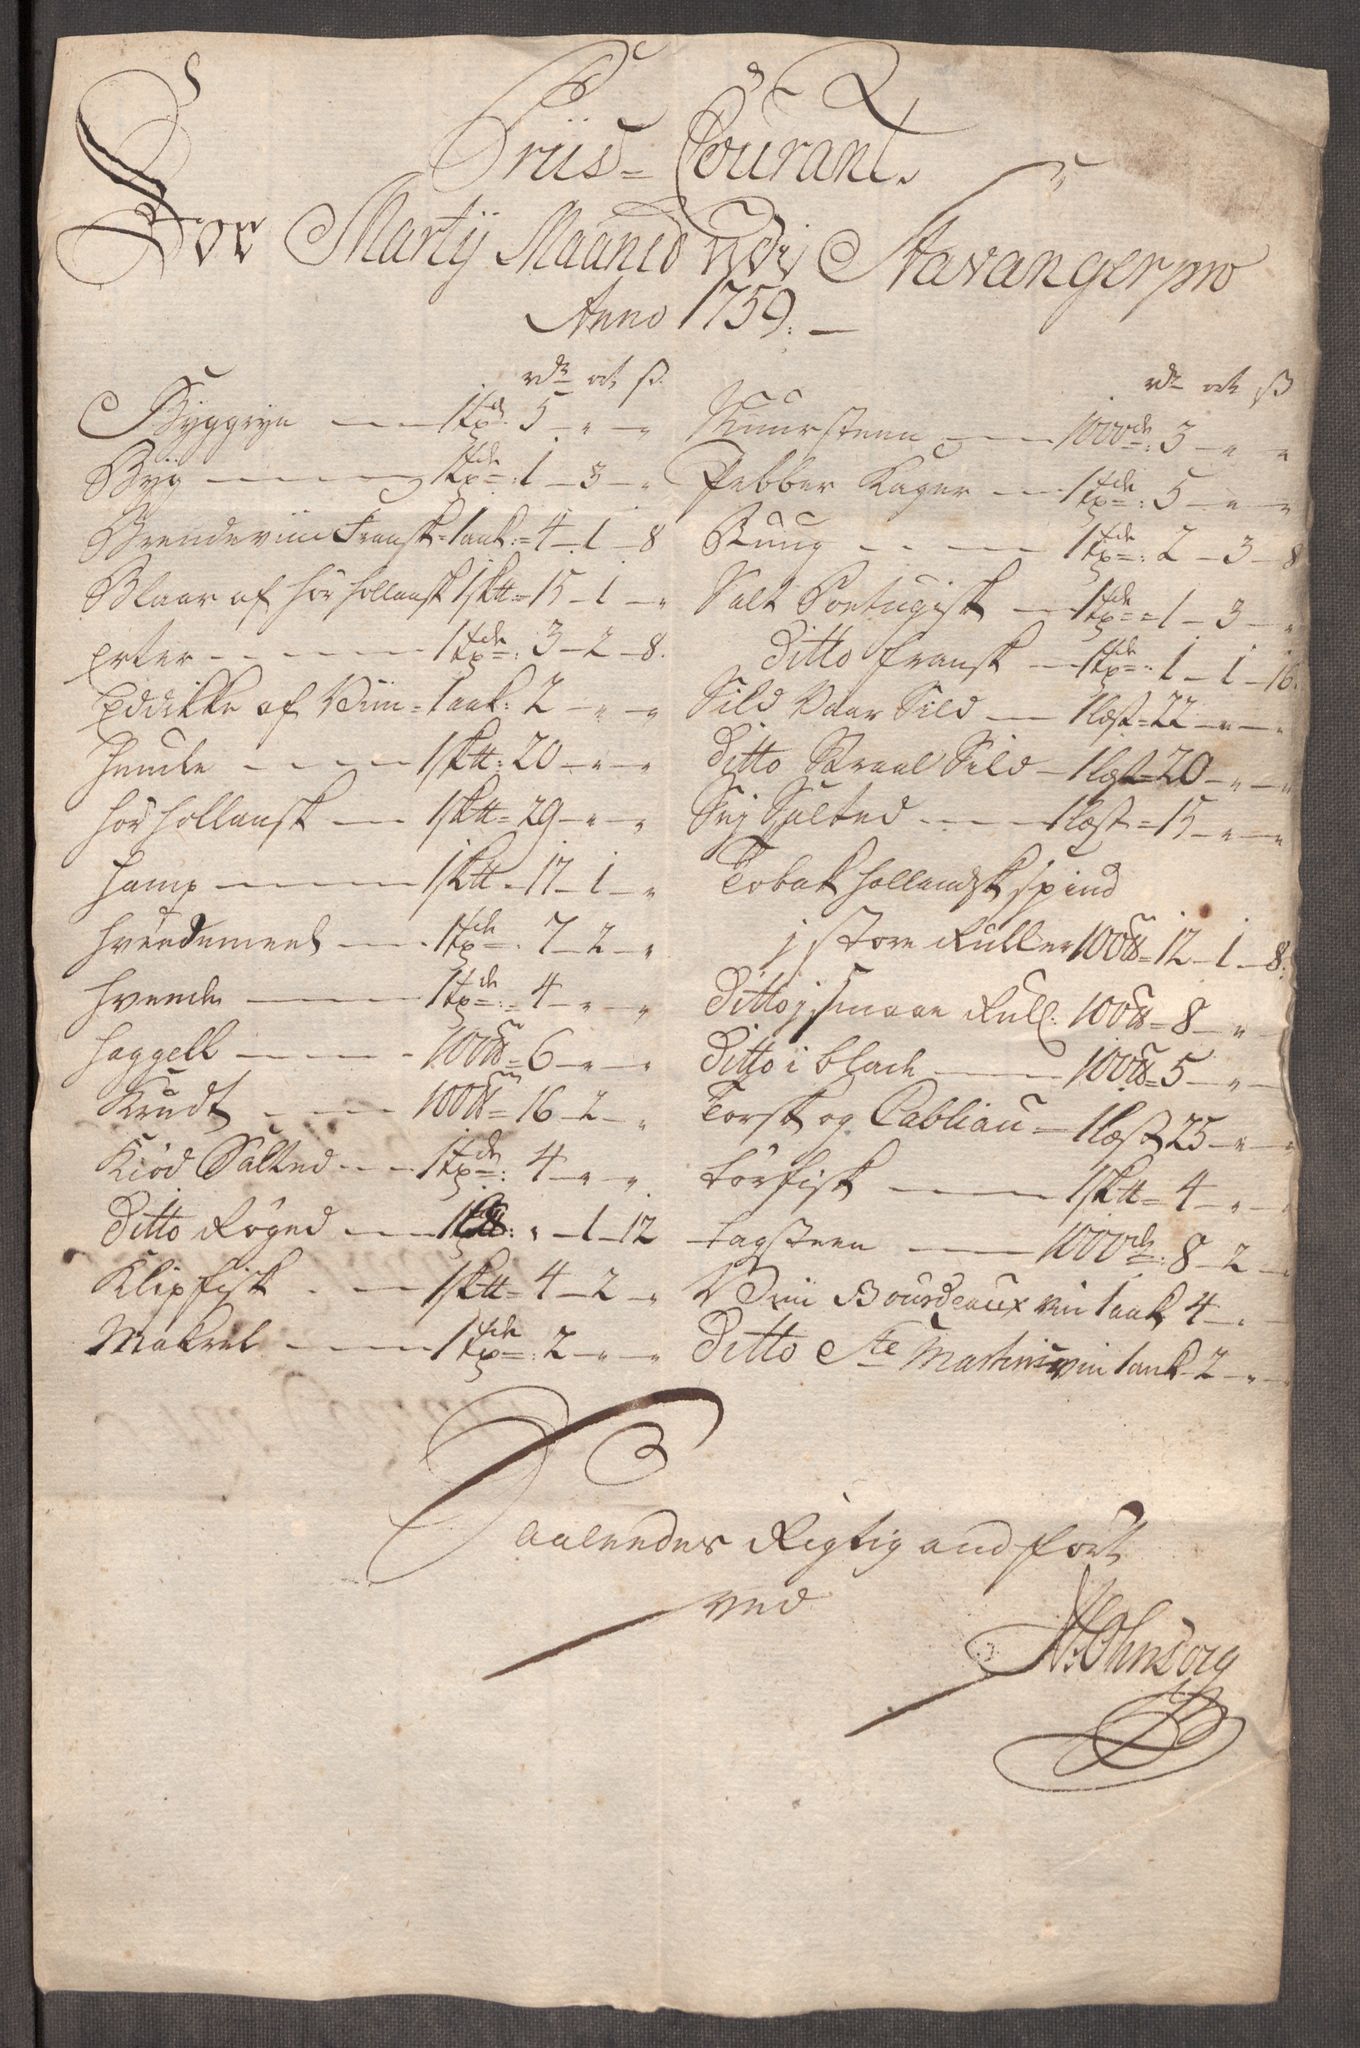 Priis-Courant.
For Martij Maaned udi Stavanger pro
Anno 1759.
rdr ort ß.
Byggryn 1 tde 5 - " - "
Byg 1 tde 1 - 3 - "
Brendeviin Fransk 1 ank: 4 - 1 - 8
Blaar af hør hollansk 1 sktt 15 - 1 - "
erter 1 tde 3 - 2 - 8.
Eddikke af Viin 1 ank: 2 - " - "
Humle 1 sktt: 20 - " - "
hør hollansk 1 sktt 29 - " - "
hamp 1 sktt 17 - 1 - "
hvedemeel 1 tde 7 - 2 - "
hvede 1 tde 4 - " - "
haggell 100 6 - " - "
Krudt 100 16 - 2 - "
Kiød Salted 1 tde 4 - " - "
Ditto Røged " - 1 - 12
Klipfisk 1 sktt 4 - 2 - "
Makrel 1 tde 2 - " - "
rdr ort ß
Muursteen 1000de 3 - " - "
Pebber Kager 1 tde 5 - " - "
Ruug 1 tde 2 - 3 - 8
Salt Portugisk 1 tde 1 - 3 - "
Ditto fransk 1 tde 1 - 1 - 16.
Sild Vaar Sild 1 læst 22 - " - "
Ditto Straal Sild 1 læst 20 - " - "
Sej Salted 1 læst 15 - " - "
Tobak hollandsk spind
j store Ruller 100 12 - 1 - 8.
Ditto j smaae Rull: 100 8 - " -
Ditto i blade 100 5 - " -
Torsk og Cabliau 1 læst 25 - " -
tørfisk 1 sktt 4 - " -
tagsteen 1000de 8 - 2 -
Viin Bourdeaux viin 1 ank 4 - " -
Ditto Ste Martins viin 1 ank 2 - " - "
Saaledes Rigtig andført
ved
Ohnsorg